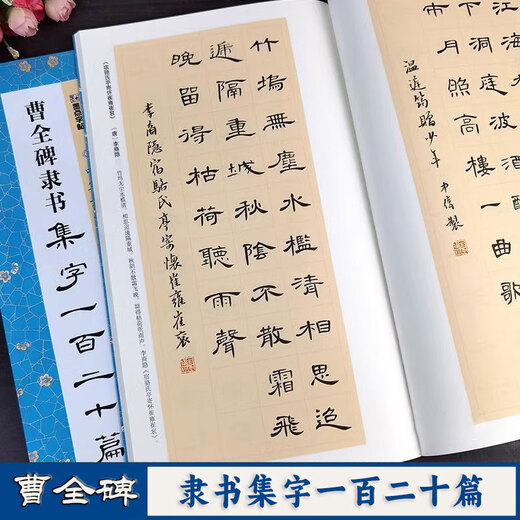 江
葉下洞庭波酒
市月照高樓一曲歌
溫庭筠贈少年
竹塢無塵水檻清相思迢
遞隔重城秋陰不散霜飛
晚留得枯荷聽雨聲
李商隱宿駱氏亭寄懷崔雍崔袞
《宿骆氏亭寄怀崔雍崔衮》 (唐) 李商隐
竹坞无尘水槛清，相思迢递隔重城。秋阴不散霜飞晚，留得枯荷听雨声。李商隐《宿骆氏亭寄怀崔雍崔衮》。
墨点字帖
曹全碑隶书集字一百二十篇
曹全碑
隶书集字一百二十篇